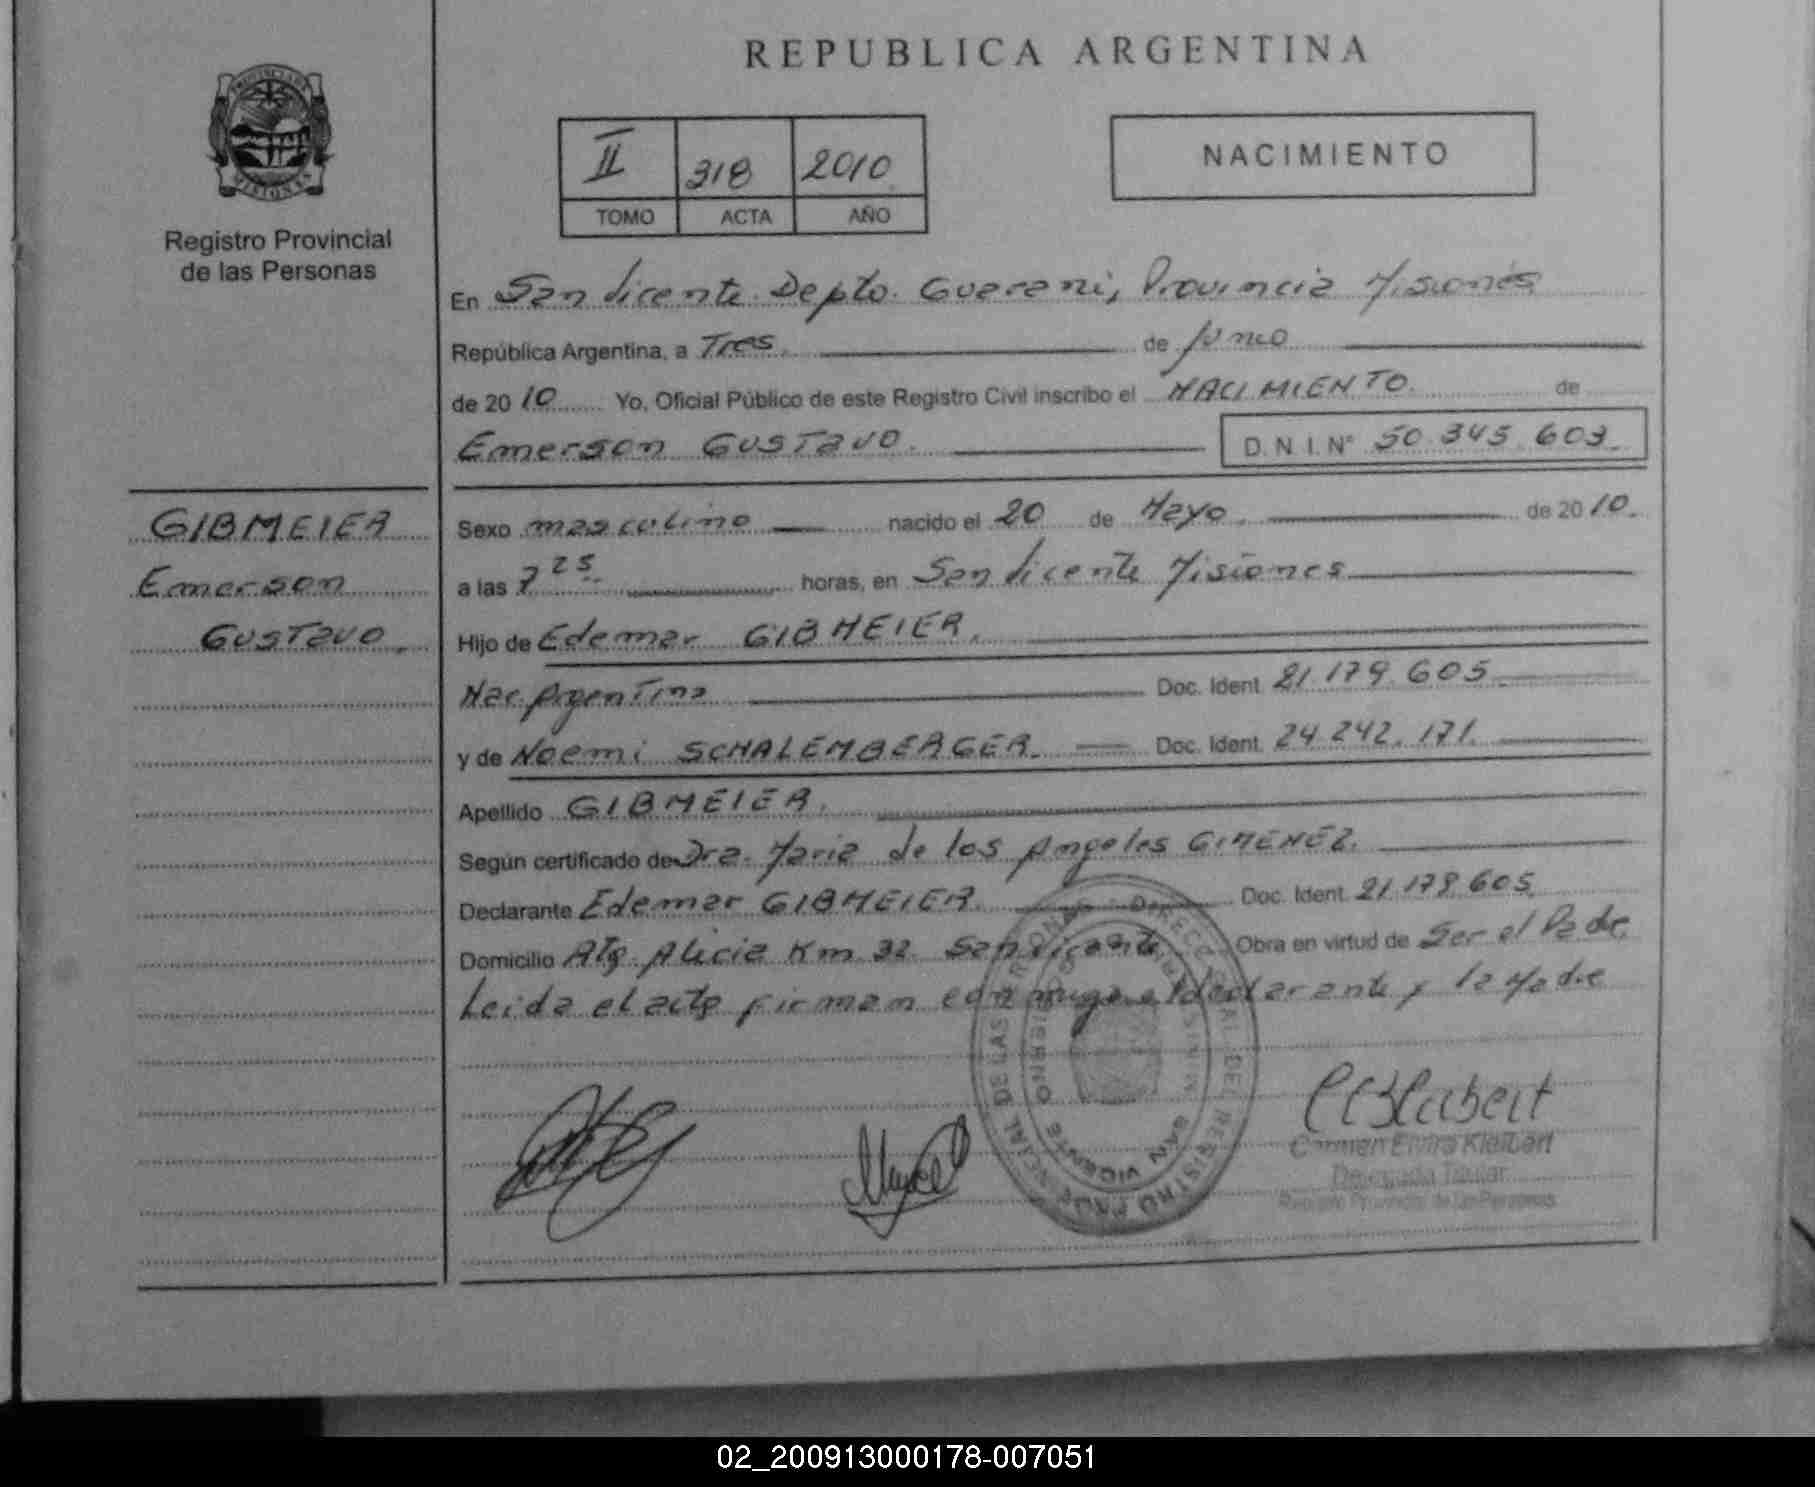 REPUBLICA ARGENTINA
PROVINCIA DE
MISIONES
Registro Provincial
de las Personas
II 318 2010
TOMO ACTA AÑO
NACIMIENTO
En San Vicente Depto. Guarani, Provincia Misiones
República Argentina, a Tres de Junio
de 2010 Yo, Oficial Público de este Registro Civil inscribo el NACIMIENTO de
Emerson GUSTavo. D. N. I. N° 50.345.603.
GIBMEIER
Emerson
GUSTavo.
Sexo masculino nacido el 20 de Mayo. de 2010.
a las 7 25 horas, en San Vicente Misiones
Hijo de Edemar GIBMEIER.
Nac. Argentina Doc. Ident. 21.179.605
y de Noemi SCHALEMBERGER. Doc. Ident. 24.242.171.
Apellido GIBMEIER.
Según certificado de Dra. Maria de los Angeles GIMENEZ.
Declarante Edemar GIBMEIER. Doc. Ident. 21.179.605
Domicilio Alicia Km 32 San Vicente Obra en virtud de Ser el Padre.
Leida el acta firman conmigo el declarante y la Madre
DIRECC DEL REGISTRO PROVINCIAL DE LAS PERSONAS
SAN VICENTE
Carmen Elvira Kleibert
Delegada Titular
Registro Provincial de Las Personas
02_200913000178-007051